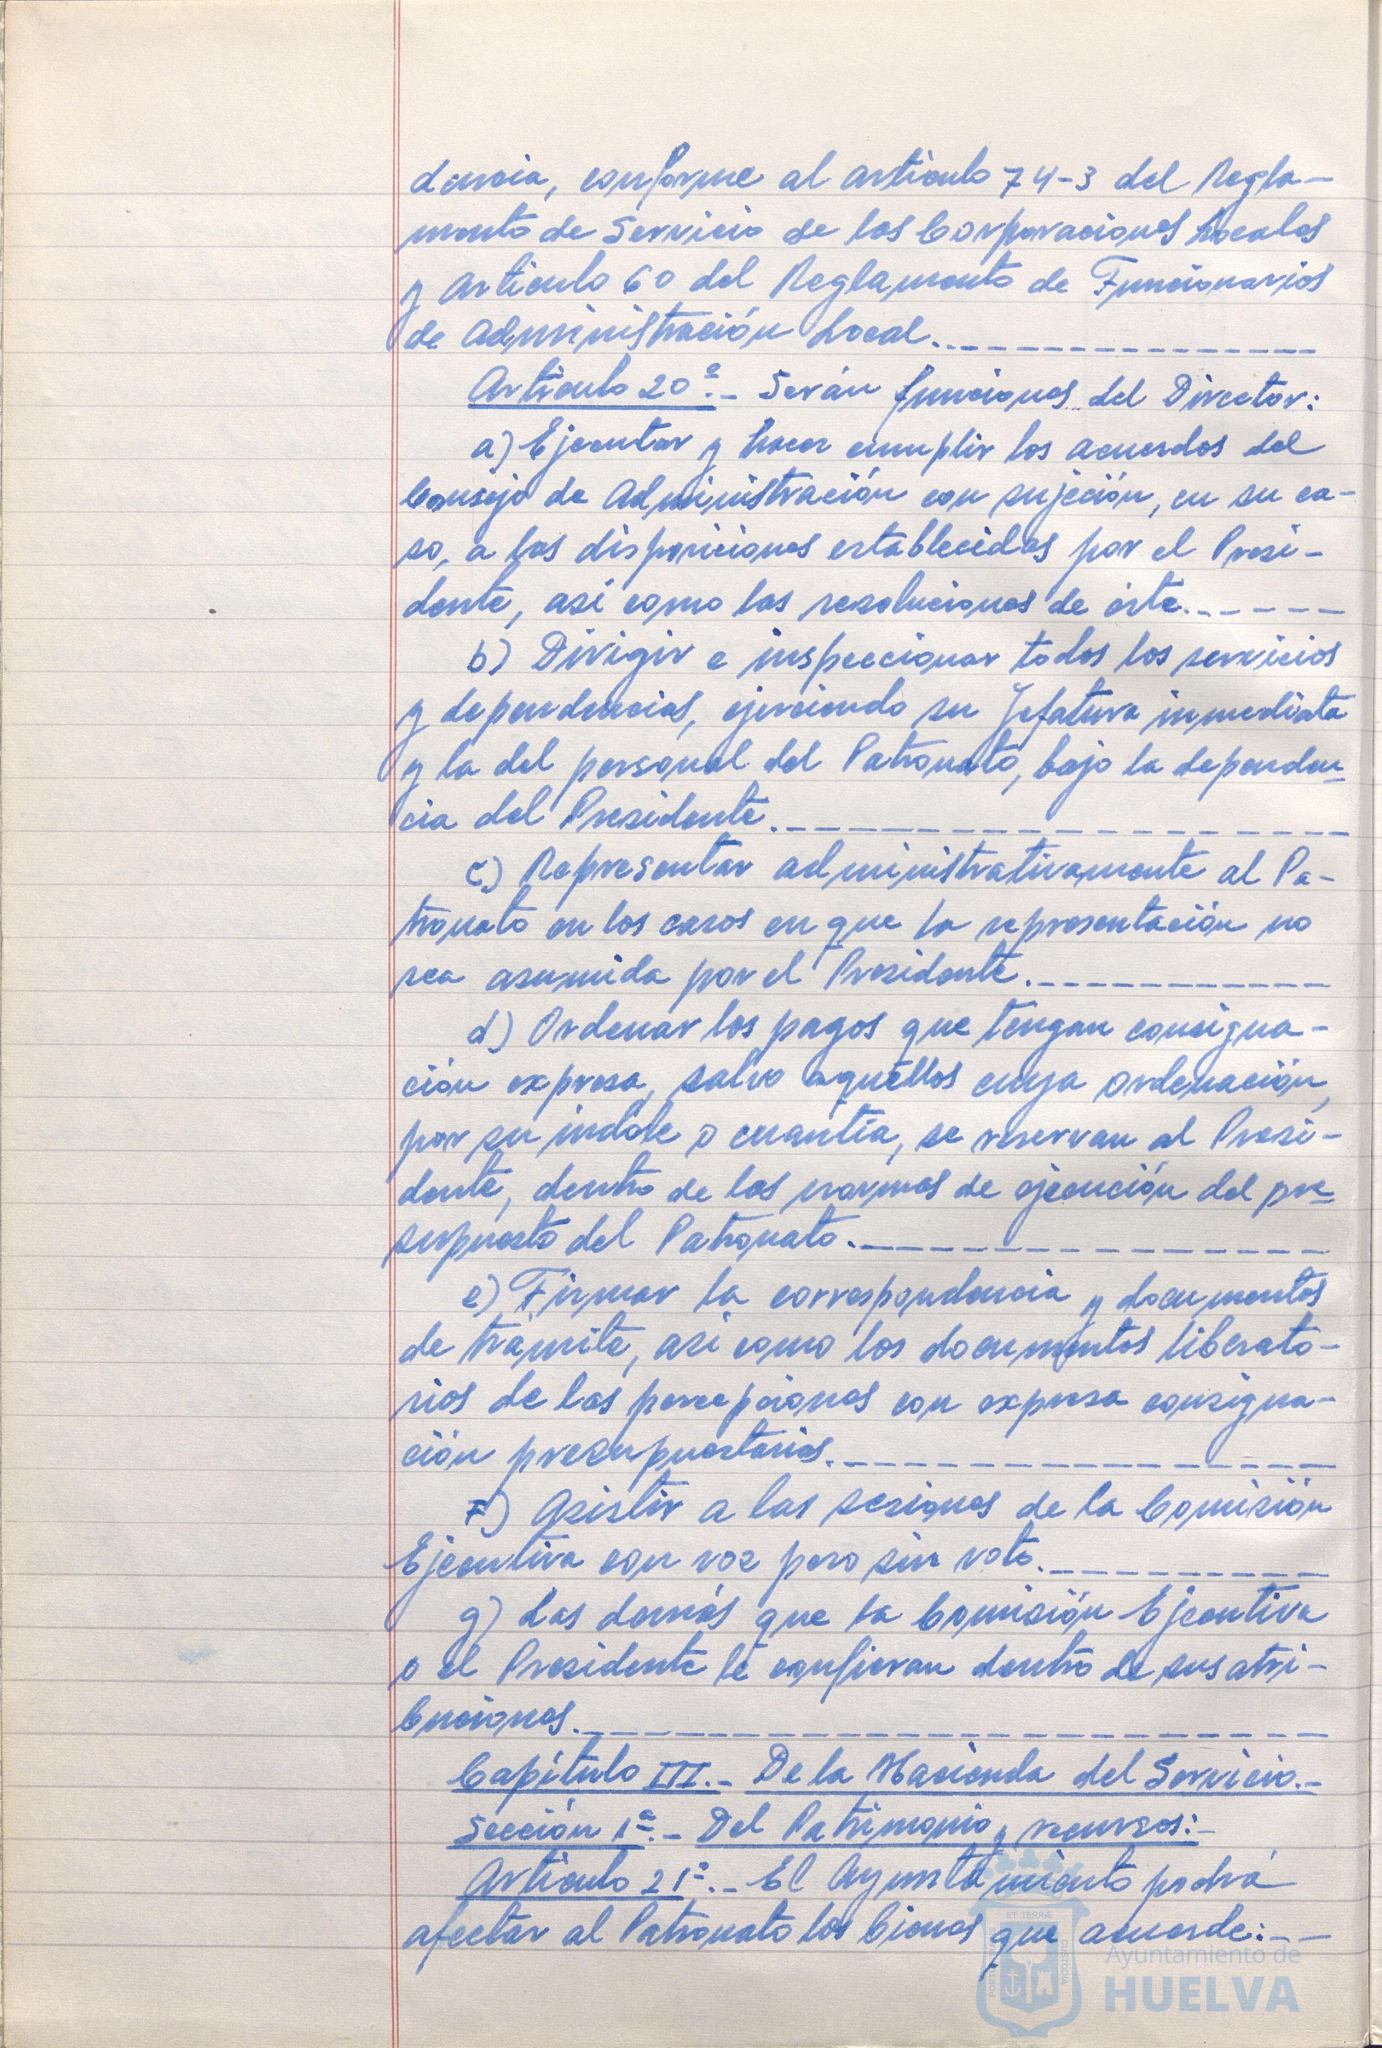 dencia, conforme al artículo 74-3 del Regla-
mento de Servicio de las Corporaciones Locales
y artículo 60 del Reglamento de Funcionarios
de Administración Local.
Artículo 20º.- Serán funciones del Director:
a) Ejecutar y hacer cumplir los acuerdos del
Consejo de Administración con sujeción, en su ca-
so, a las disposiciones establecidas por el Presi-
dente, así como las resoluciones de éste.
b) Dirigir e inspeccionar todos los servicios
y dependencias, ejerciendo su Jefatura inmediata
y la del personal del Patronato, bajo la dependen-
cia del Presidente.
c) Representar administrativamente al Pa-
tronato en los casos en que la representación no
sea asumida por el Presidente.
d) Ordenar los pagos que tengan consigna-
ción expresa, salvo aquéllos cuya ordenación,
por su indole o cuantía, se reservan al Presi-
dente, dentro de las normas de ejecución del pre-
supuesto del Patronato.
e) Firmar la correspondencia y documentos
de trámite, así como los documentos liberato-
rios de las percepciones con expresa consigna-
ción presupuestarias.
F) Asistir a las sesiones de la Comisión
Ejecutiva con voz pero sin voto.
g) Las demás que la Comisión Ejecutiva
o el Presidente le confieran dentro de sus atri-
buciones.
Capítulo III.- De la Hacienda del Servicio.-
Sección 1ª.- Del Patrimonio y recursos:-
Artículo 21º.- El Ayuntamiento podrá
afectar al Patronato los bienes que acuerde:--
ET TERRÆ
CUSTODIA
Ayuntamiento de
HUELVA